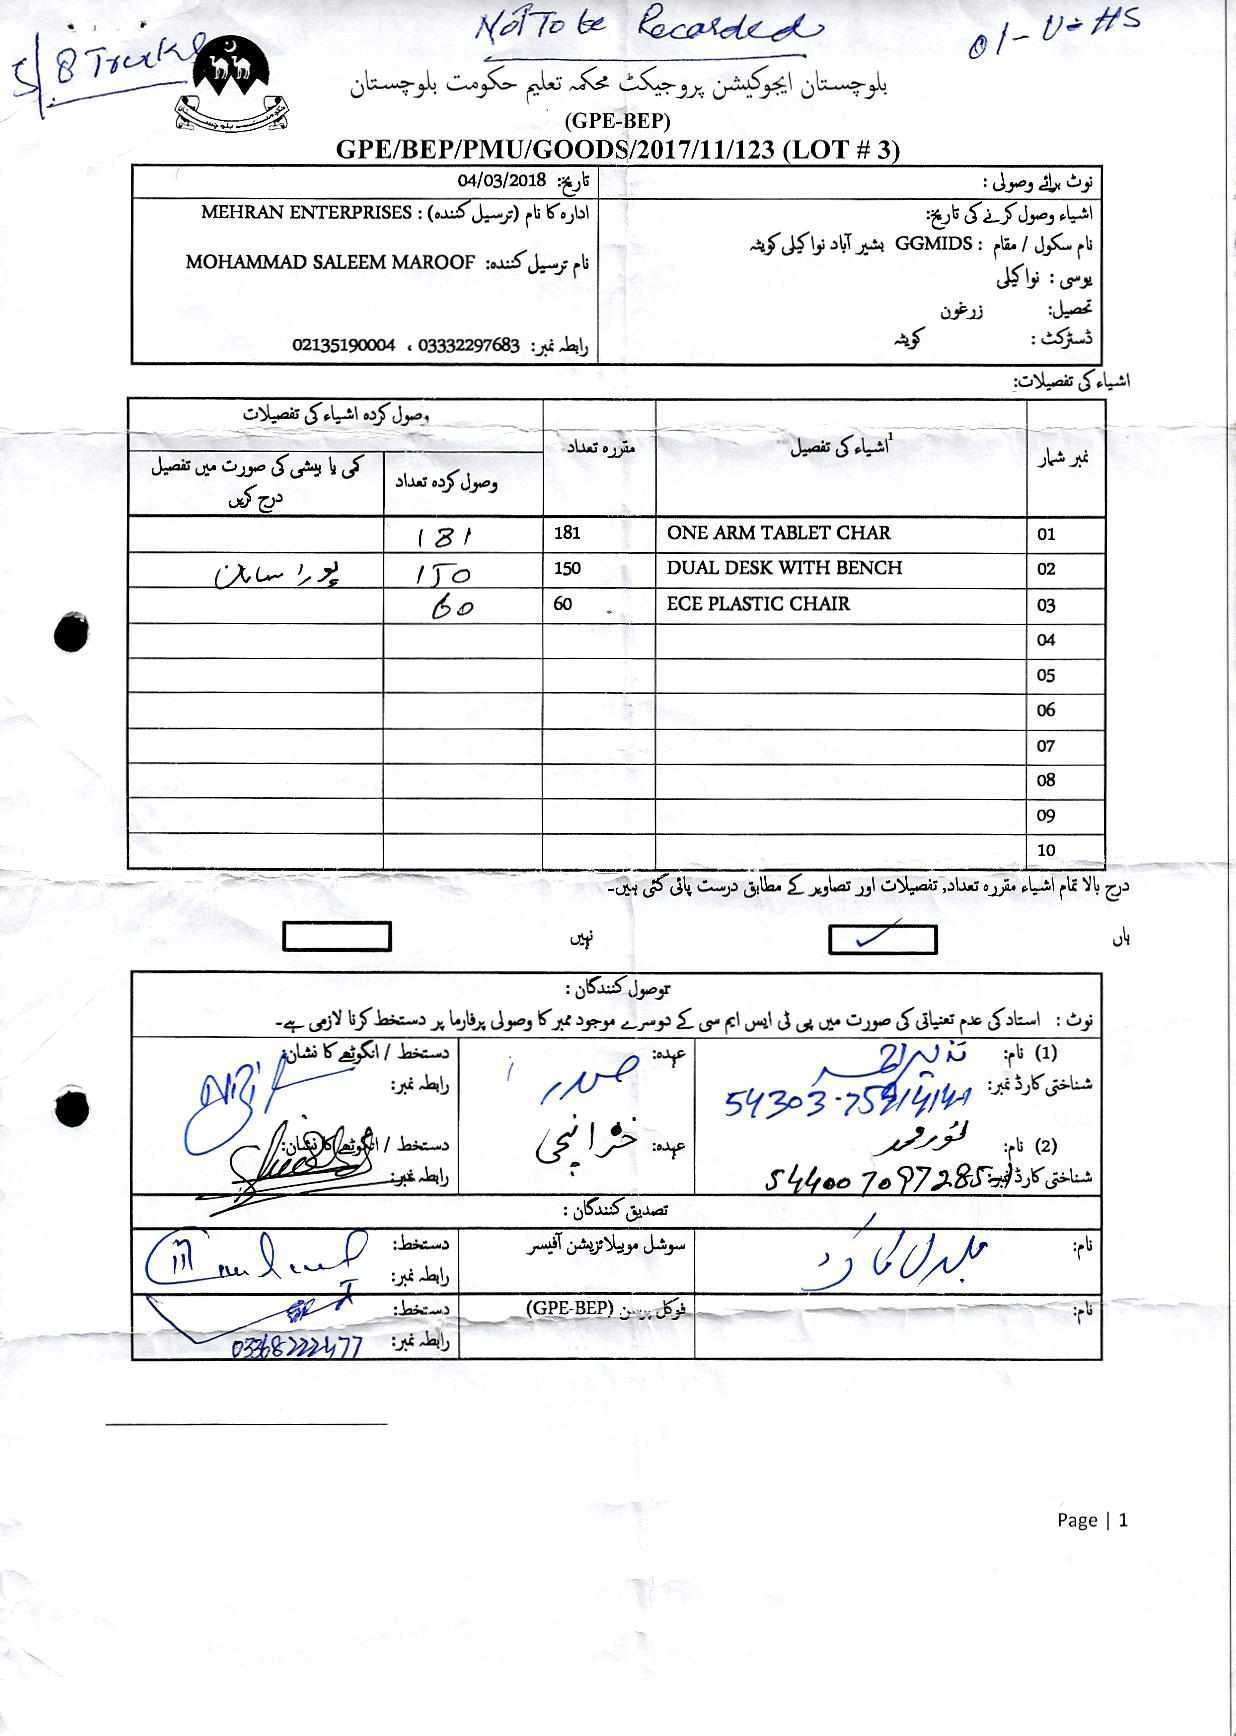 Not To be Recorded
01-U-HS
S/8 Truck
بلوچستان ایجوکیشن پروجیکٹ محکمہ تعلیم حکومت بلوچستان
(GPE-BEP)
GPE/BEP/PMU/GOODS/2017/11/123 (LOT # 3)
نوٹ برائے وصولی :
تاریخ: 04/03/2018
اشیاء وصول کرنے کی تاریخ:
نام سکول / مقام : GGMIDS بشیر آباد نوا کیلی کوئٹہ
یوسی : نوا کیلی
تحصیل: زرغون
ڈسٹرکٹ : کوئٹہ
ادارہ کا نام (ترسیل کنندہ) : MEHRAN ENTERPRISES
نام ترسیل کنندہ: MOHAMMAD SALEEM MAROOF
رابطہ نمبر: 03332297683 ، 02135190004
اشیاء کی تفصیلات:
نمبر شمار اشیاء کی تفصیل1 مقررہ تعداد وصول کردہ اشیاء کی تفصیلات
وصول کردہ تعداد کمی یا بیشی کی صورت میں تفصیل درج کریں
01 ONE ARM TABLET CHAR 181 181
02 DUAL DESK WITH BENCH 150 150 پورا سامان
03 ECE PLASTIC CHAIR 60 60
04
05
06
07
08
09
10
درج بالا تمام اشیاء مقررہ تعداد, تفصیلات اور تصاویر کے مطابق درست پائی گئی ہیں۔
ہاں ✓ نہیں
توصول کنندگان :
نوٹ : استاد کی عدم تعنیاتی کی صورت میں پی ٹی ایس ایم سی کے دوسرے موجود ممبر کا وصولی پرفارما پر دستخط کرنا لازمی ہے۔
(1) نام: عہدہ: صدر دستخط / انگوٹھے کا نشان:
شناختی کارڈ نمبر: رابطہ نمبر:
(2) نام: نور محمد عہدہ: خزانچی دستخط / انگوٹھے کا نشان:
شناختی کارڈ نمبر: 5440070972851 رابطہ نمبر:
تصدیق کنندگان :
نام: سوشل موبیلائزیشن آفیسر دستخط:
رابطہ نمبر:
نام: فوکل پرسن (GPE-BEP) دستخط:
رابطہ نمبر: 03368222477
Page | 1